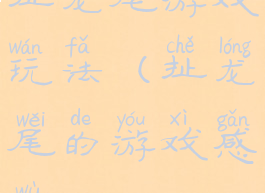 扯龙尾游戏
wán fǎ chě lóng
玩法(扯龙
wěi de yóu xì gǎn
尾的游戏感
wù